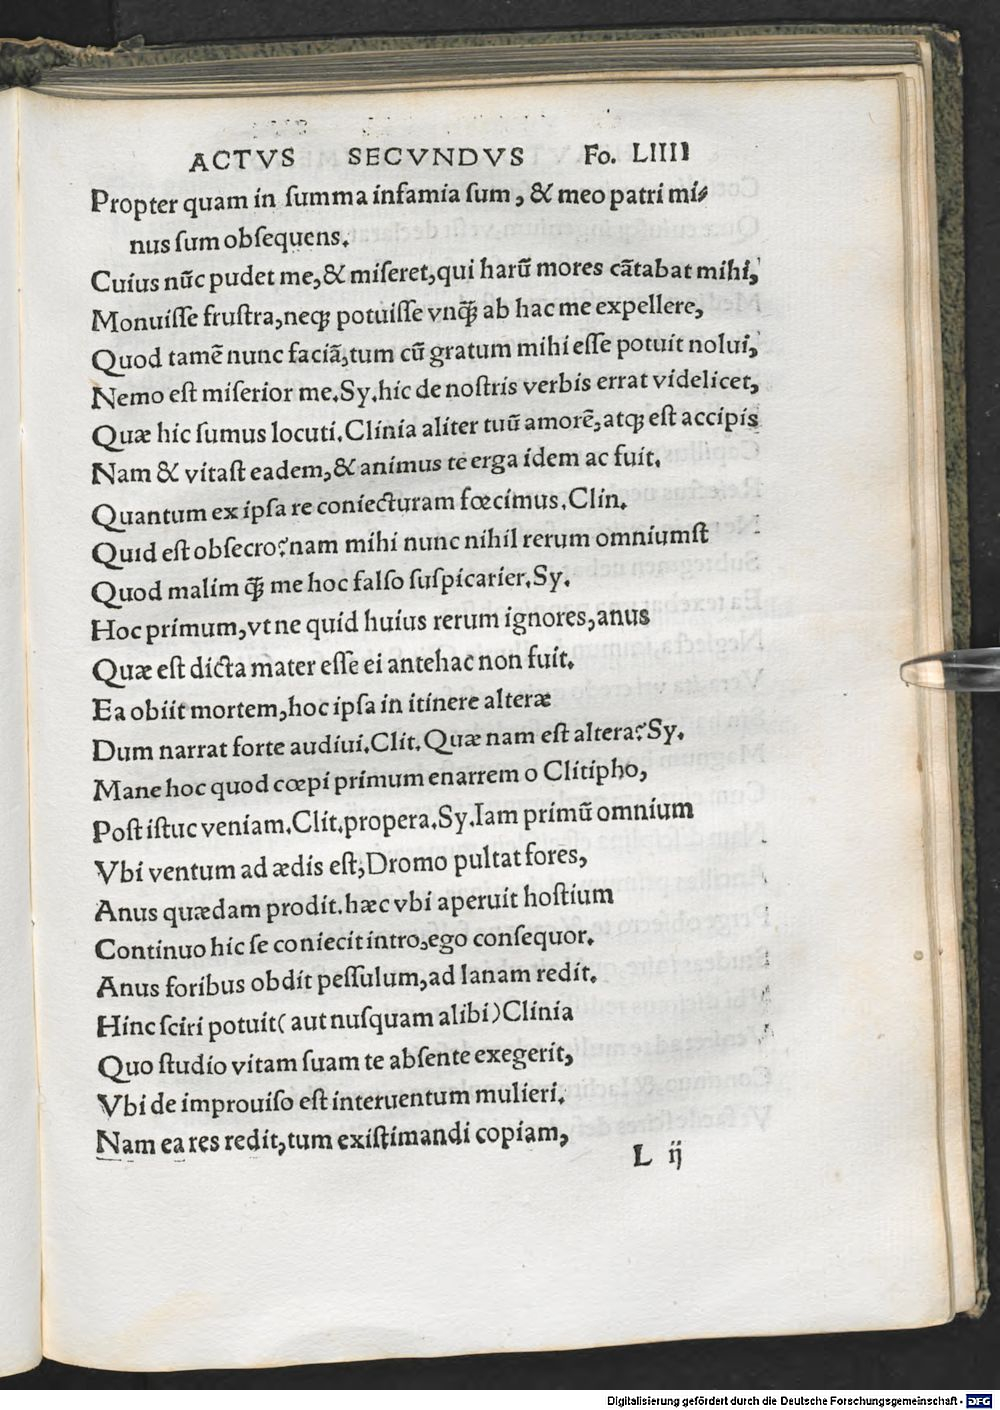 ACTVS SECVNDVS Fo. LIIII
Propter quam in ſumma infamia ſum, & meo patri mi⸗
nus ſum obſequens.
Cuius nūc pudet me, & miſeret, qui harū mores cātabat mihi,
Monuiſſe fruſtra, neqꝫ potuiſſe vnꝗ̃ ab hac me expellere,
Quod tamē nunc faciā, tum cū gratum mihi eſſe potuit nolui,
Nemo eſt miſerior me. Sy. hic de noſtris verbis errat videlicet,
Quæ hic ſumus locuti. Clinia aliter tuū amorē, atqꝫ eſt accipis
Nam & vitaſt eadem, & animus te erga idem ac fuit.
Quantum ex ipſa re coniecturam fœcimus. Clin.
Quid eſt obſecro? nam mihi nunc nihil rerum omniumſt
Quod malim ꝗ̃ me hoc falſo ſuſpicarier. Sy.
Hoc primum, vt ne quid huius rerum ignores, anus
Quæ eſt dicta mater eſſe ei antehac non fuit.
Ea obiit mortem, hoc ipſa in itinere alteræ
Dum narrat forte audiui. Clit. Quæ nam eſt altera? Sy.
Mane hoc quod cœpi primum enarrem o Clitipho,
Poſt iſtuc veniam. Clit. propera. Sy. Iam primū omnium
Vbi ventum ad ædis eſt, Dromo pultat fores,
Anus quædam prodit. hæc vbi aperuit hoſtium
Continuo hic ſe coniecit intro, ego conſequor.
Anus foribus obdit peſſulum, ad lanam redit.
Hinc ſciri potuit ( aut nuſquam alibi ) Clinia
Quo ſtudio vitam ſuam te abſente exegerit,
Vbi de improuiſo eſt interuentum mulieri.
Nam ea res redit, tum exiſtimandi copiam,
L ij
Digitalisierung gefördert durch die Deutsche Forschungsgemeinschaft - DFG